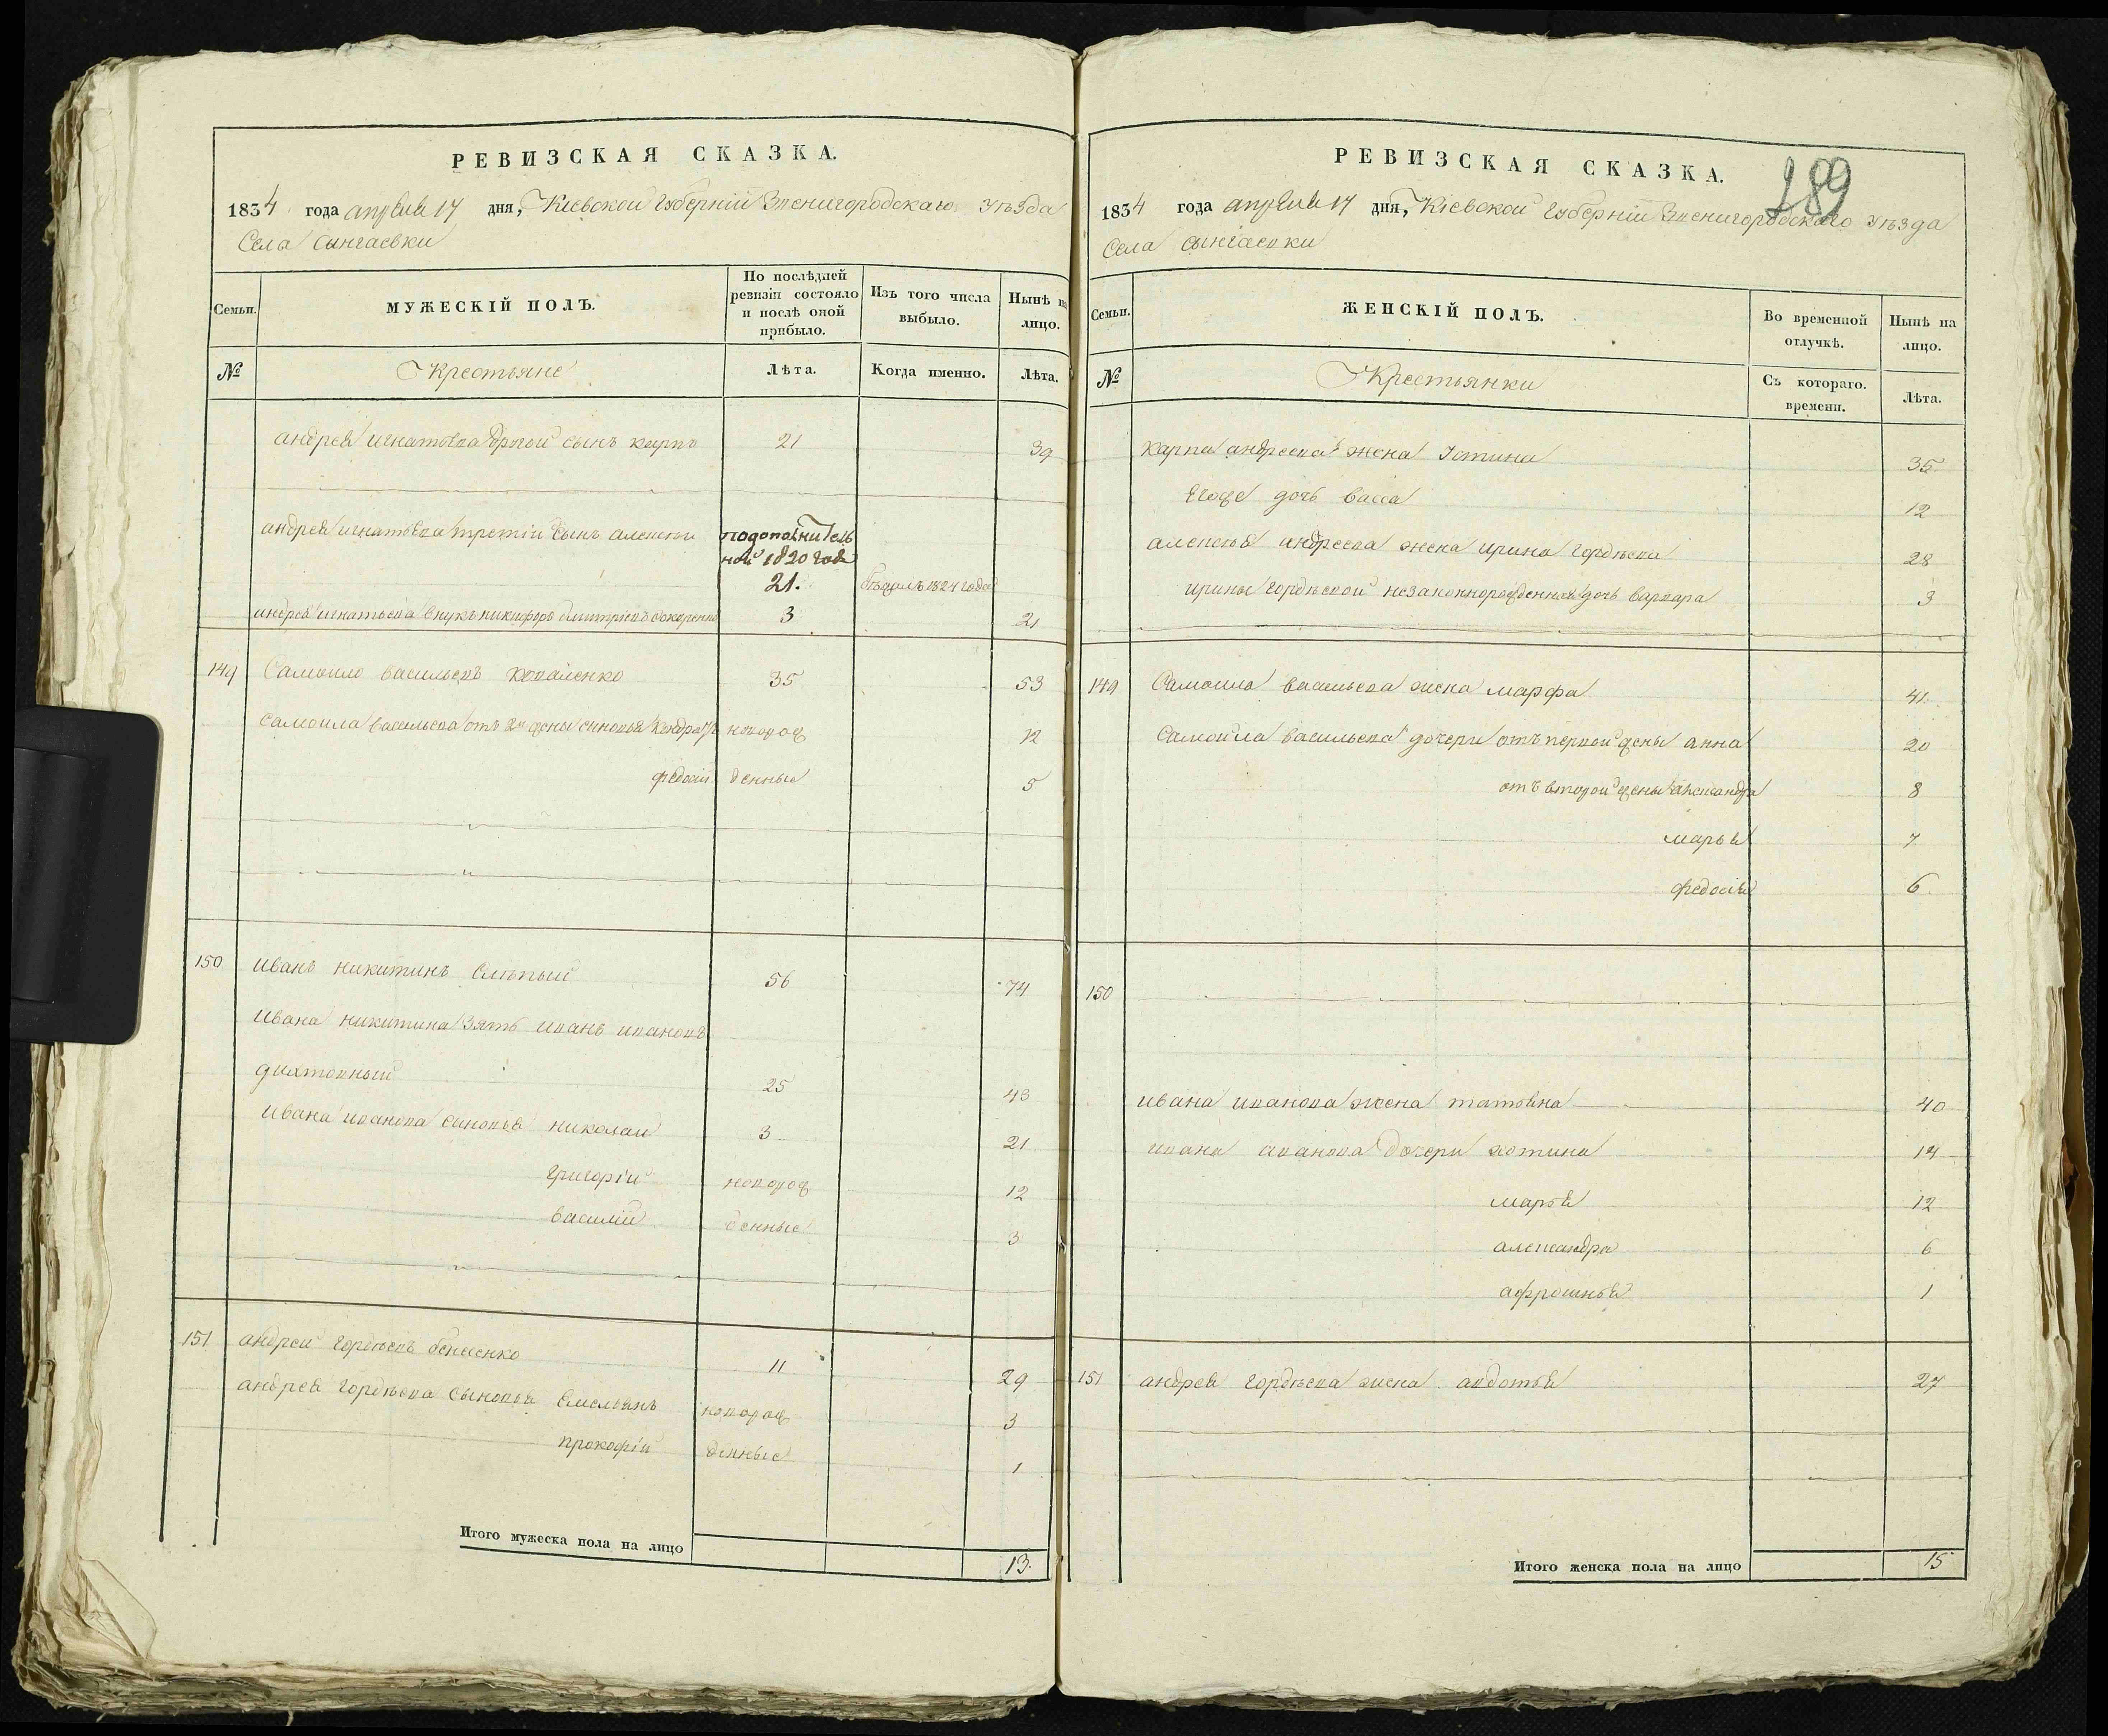 РЕВИЗСКАЯ СКАЗКА.
1834 года апреля 17 дня, Кіевской Губерніи Звенигородскаго Уѣзда
Села
Семьи.
МУЖЕСКІЙ ПОЛЪ.
По послѣдней ревизіи состояло и послѣ оной прибыло.
Изъ того числа выбыло.
Нынѣ на лицо.
№
Крестьяне
Лѣта.
Когда именно.
Лѣта.
андрея игнатьева другой сынъ карпъ 21 39
андрея игнатьева третій сынъ алексей
по дополнитель
ной 1820 года
21. 1824 года
андрея игнатьева внукъ никифоръ дмитріевъ 3 21
149 Самоило васильевъ 35 53
самоила васильева отъ 2й жены сыновья новорож 12
федосій денные 5
150 иванъ никитинъ Слѣпый 56 74
ивана никитина зять иванъ ивановъ
25 43
ивана иванова сыновья николай 3 21
григорій новорож 12
василій денные 3
151 андрей гордѣевъ 11 29
андрея гордѣева сыновья Емельянъ новорож 3
прокофій денные 1
Итого мужеска пола на лицо 13.
289
РЕВИЗСКАЯ СКАЗКА.
1834 года апреля 17 дня, Кіевской Губерніи Звенигородскаго Уѣзда
Села
Семьи.
ЖЕНСКІЙ ПОЛЪ.
Во временной отлучкѣ.
Нынѣ на лицо.
№
Крестьянки
Съ котораго. времени.
Лѣта.
карпа андреева жена Устина 35.
Егоже дочь васса 12
алексея андреева жена ирина гордѣева 28
ирины гордѣевой незаконнорожденная дочь варвара 3
149 Самоила васильева жена марфа 41.
Самоила васильева дочери отъ первой жены анна 20
отъ второй жены александра 8
марья 7
федосія 6.
150
ивана иванова жена татьяна 40
ивана иванова дочери 14
марья 12
александра 6
1
151 андрея гордѣева жена авдотья 27
Итого женска пола на лицо 15